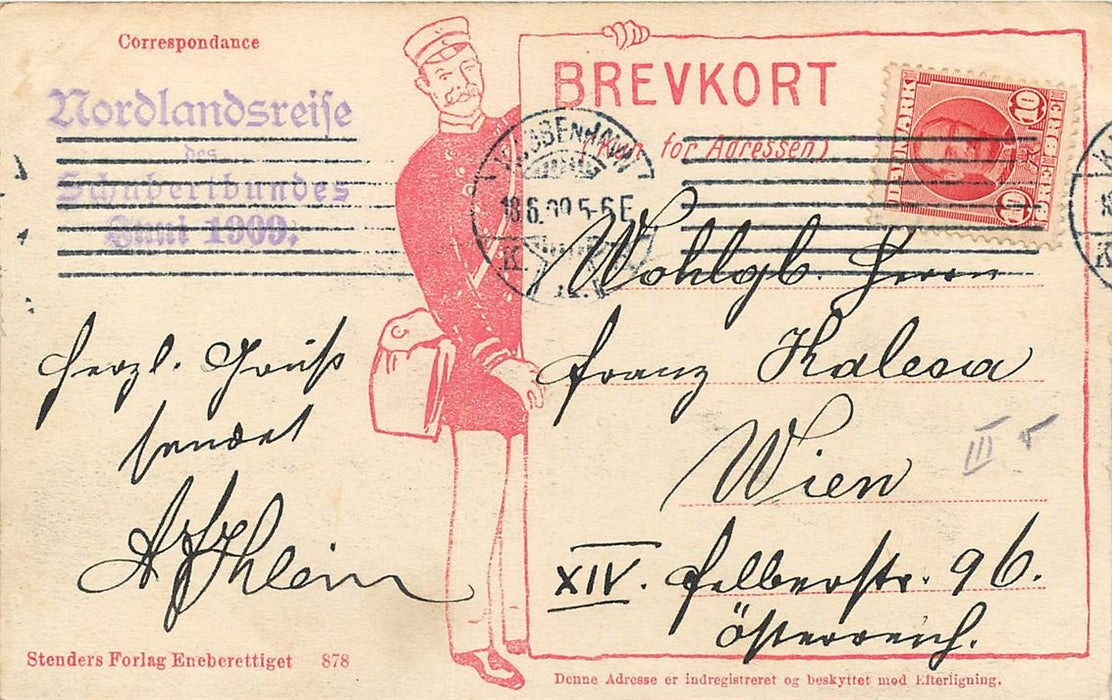 Correspondance
Nordlandsreise
des
Schubertbundes
Juni 1909.
BREVKORT
(Kun for Adressen)
DANMARK
10
10
KJØBENHAVN
18.6.09 5-6 E
K
Herzl. Gruß
sendet
Wohlgb. Herrn
Franz Kalesa
Wien
III
XIV. Felberstr. 96.
Österreich.
Stenders Forlag Eneberettiget 878
Denne Adresse er indregistreret og beskyttet mod Efterligning.